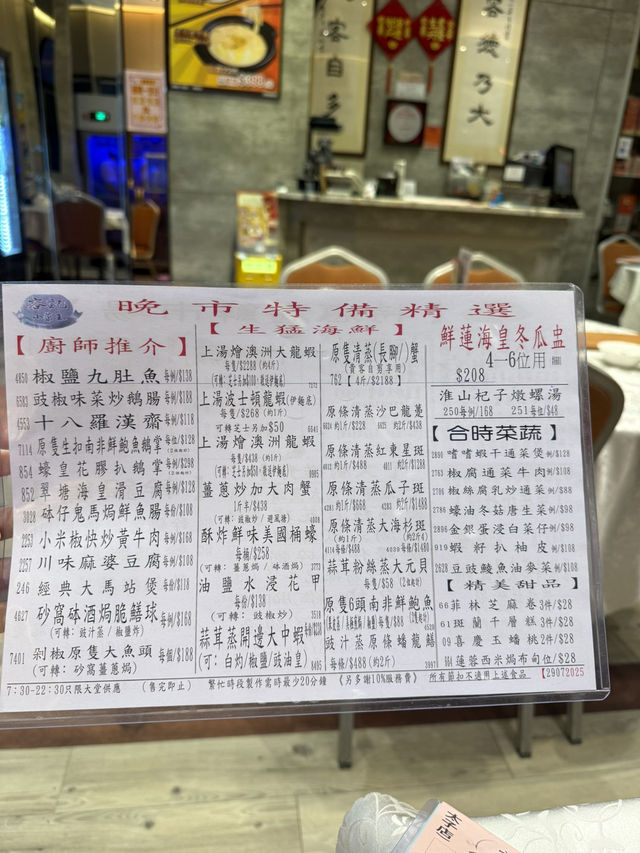 客自多
客遠乃大
晚市特備精選
【廚師推介】
4850 椒鹽九肚魚 每例/$138
6583 豉椒味菜炒鵝腸 每例/$188
4553 十八羅漢齋 每例/$118
7114 原隻生扣南非鮮鮑魚鵝掌 每位/$128
854 蠔皇花膠扒鵝掌 每例/$298
852 翠塘海皇滑豆腐 每例/$128
3028 砵仔鬼馬焗鮮魚腸 每份/$108
2253 小米椒快炒黃牛肉 每例/$168
2257 川味麻婆豆腐 每例/$108
246 經典大馬站煲 每份/$118
4627 砂窩砵酒焗脆鱔球 每例/$168
(可轉：豉汁蒸/椒鹽炸)
7401 剁椒原隻大魚頭 每個/$188
(可轉：砂窩薑蔥焗)
【生猛海鮮】
上湯燴澳洲大龍蝦
每隻/$2288 (約4斤)
上湯波士頓龍蝦(伊麵底)
每隻/$268 (約1斤)
可轉芝士另加$50 6641
上湯燴澳洲龍蝦
每隻/$388
薑蔥炒加大肉蟹
1斤半/$438
(可轉：豉椒炒/避風塘) 4008
酥炸鮮味美國桶蠔
每桶/$258
(可轉：薑蔥焗/砵酒焗) 3773
油鹽水浸花甲
每份/$138
(可轉：豉椒炒) 3518
蒜茸蒸開邊大中蝦
(可：白灼/椒鹽/豉油皇) 8405
原隻清蒸(長腳/)蟹
(貴客自剪享用)
762【4斤/$2188】
原條清蒸沙巴龍躉
6624 約1斤/$228 6625 約2斤/$438
原條清蒸紅東星斑
4012 約1斤/$488 4011 約2斤/$1288
原條清蒸瓜子斑
4287 約1斤/$668 4283 約2斤/$1488
原條清蒸大海杉斑
(約1斤) (約2斤4)
4514 每條/$488 4039 每條/$1480
蒜茸粉絲蒸大元貝
每隻/$58 (2位起計)
原隻6頭南非鮮鮑魚
豉汁蒸原條蟠龍鱔
每條/$488 (約2斤) 3997
鮮蓮海皇冬瓜盅
4—6位用
$208
淮山杞子燉螺湯
250每例/168 251每位/$48
【合時菜蔬】
2890 嗜嗜蝦干通菜煲 例/$128
2763 椒腐通菜牛肉 例/$108
2706 椒絲腐乳炒通菜 例/$88
2786 蠔油冬菇唐生菜 例/$98
2896 金銀蛋浸白菜仔 例/$98
919 蝦籽扒柚皮 例/$108
2628 豆豉鯪魚油麥菜 例/$108
【精美甜品】
66 菲林芝麻卷 3件/$28
61 斑蘭千層糕 3件/$28
09 喜慶玉蟠桃 2件/$28
664 蓮蓉西米焗布甸 位/$28
7:30-22:30只限大堂供應 (售完即止) 繁忙時段製作需時最少20分鐘 《另多謝10%服務費》 所有節扣不適用上述食品 【29072025
太子店